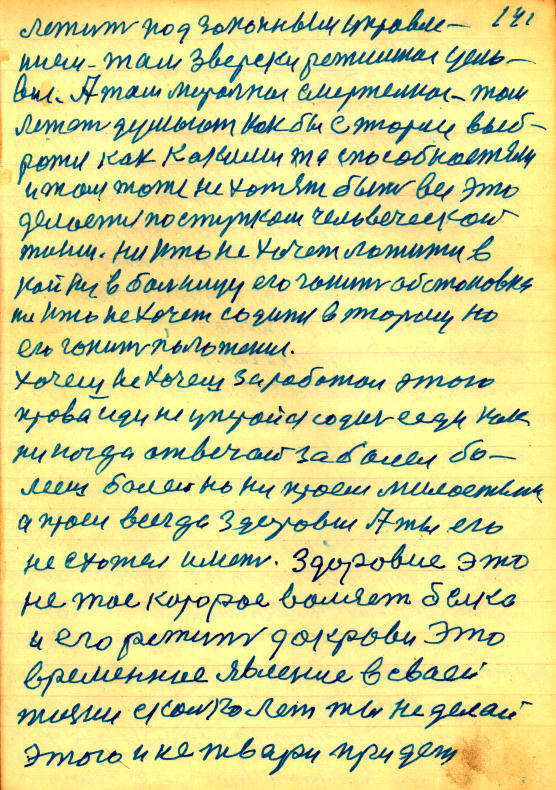 141
лежит под законным управле-
нием - там зверски режимная цель-
вия. А там моралная смертелная - там
лежат душевнот как бы с тюрмы выб-
роже как какими то способностями
и там тоже не хотят быть все это
делоется поступком человеческой
жизни. ни кто не хочет ложится в
койку в болницу его гонит обстоновка
ни кто не хочет содится в тюрому но
его гонит положения.
хочеш не хочеш заработал этого
права иди не упирайся содит сяди как
ни когда отвечай заболел бо-
леещ болей но ни проси милостыни
а проси всегда здоровия А ты его
не схотел иметь. Здоровие это
не тое которое воляет белка
и его режить до крови Это
временное явление в своей
жизни сколко лет ты не делай
этого и не твари придет